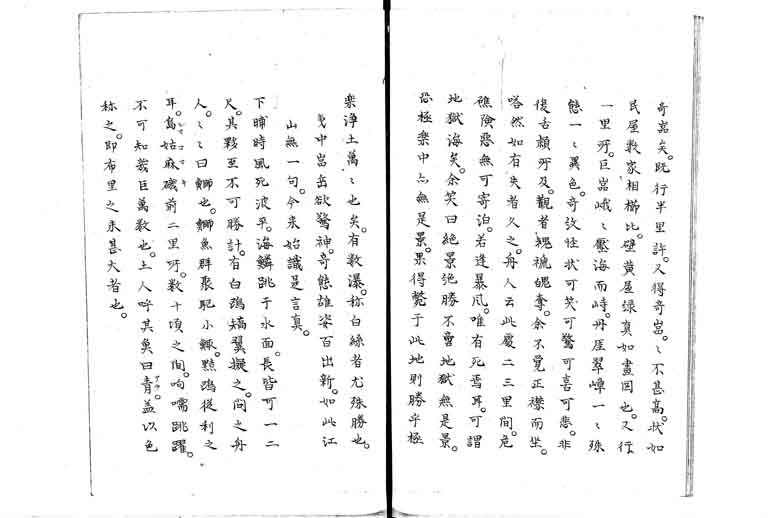 奇嵓矣。既行半里許。又得奇嵓。〻不甚高。状如
民屋数家相櫛比。壁黄屋緑真如畫図也。又行
一里所。巨嵓峨〻壓海而峙。丹厓翠嶂一〻殊
態一〻異色。奇效怪状可笑可驚可喜可悲。非
復舌頬所及。觀者魂褫魄奪。余不覚正襟而坐。
嗒然如有失者久之。舟人云此處二三里間。危
礁険悪無可寄泊。若逢暴凨。唯有死焉耳。可謂
地獄海矣。余笑曰絶景絶勝不啻地獄無是景。
恐極楽中亦無是景。果得斃于此地則勝乎極
楽浄土萬〻也矣。有数瀑。称白絲者尤殊勝也。
中嵓岳欲驚神。奇態雄姿百出新。如此江
山無一句。今来始識是言真。
下晡時風死波平。海鱗跳于水面。長皆可一二
尺。其夥至不可勝計。有白鴎矯翼擬之。問之舟
人。〻〻曰鰤也。鰤魚群聚駆小鰍。點鴎従利之
耳。島姑麻磯前二里所。数十頃之間。呴嚅跳躍。
不可知幾巨萬数也。土人呼其魚曰青。盖以色
称之。即布里之未甚大者也。